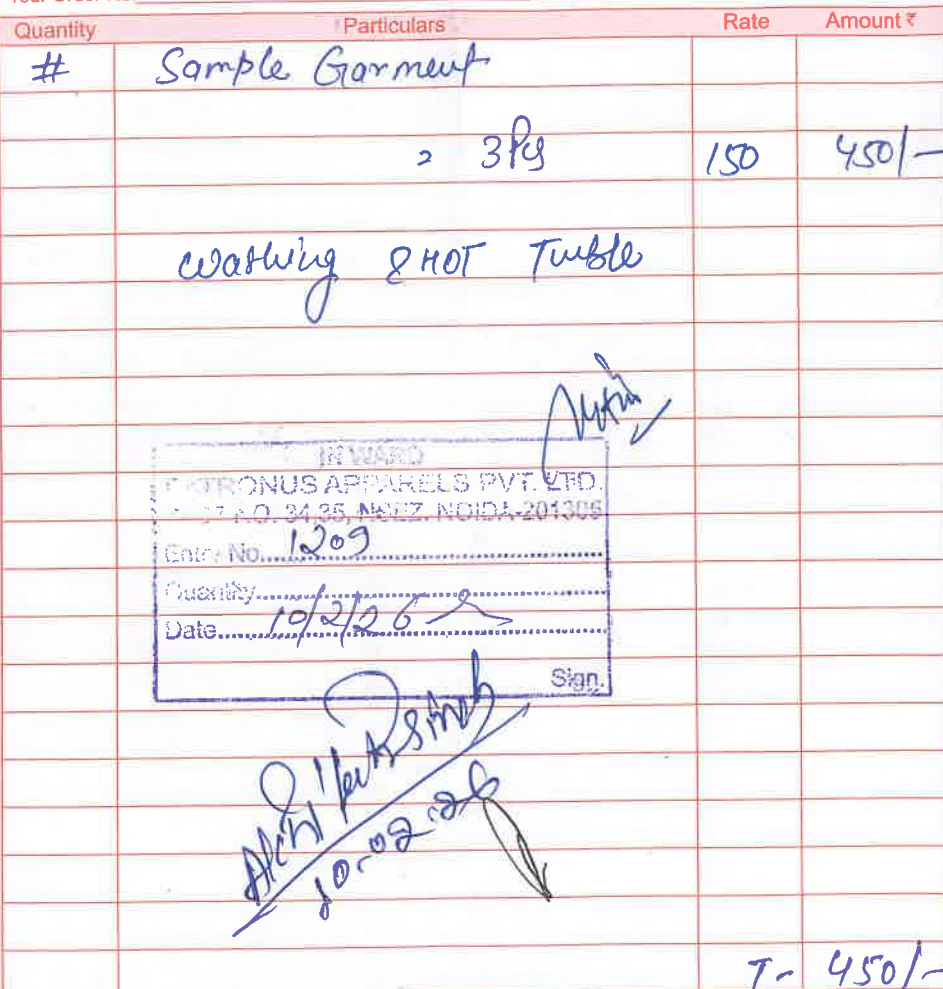 Quantity Particulars Rate Amount ₹
# Sample Garment
= 3 Pcs 150 450/-
Washing & HOT Tumble
INWARD
TRONUS APPARELS PVT. LTD.
34,35, NSEZ, NOIDA-201305
Entry No. 1209
Quantity
Date 10/2/26
Sign.
Singh
10-02-26
T- 450/-